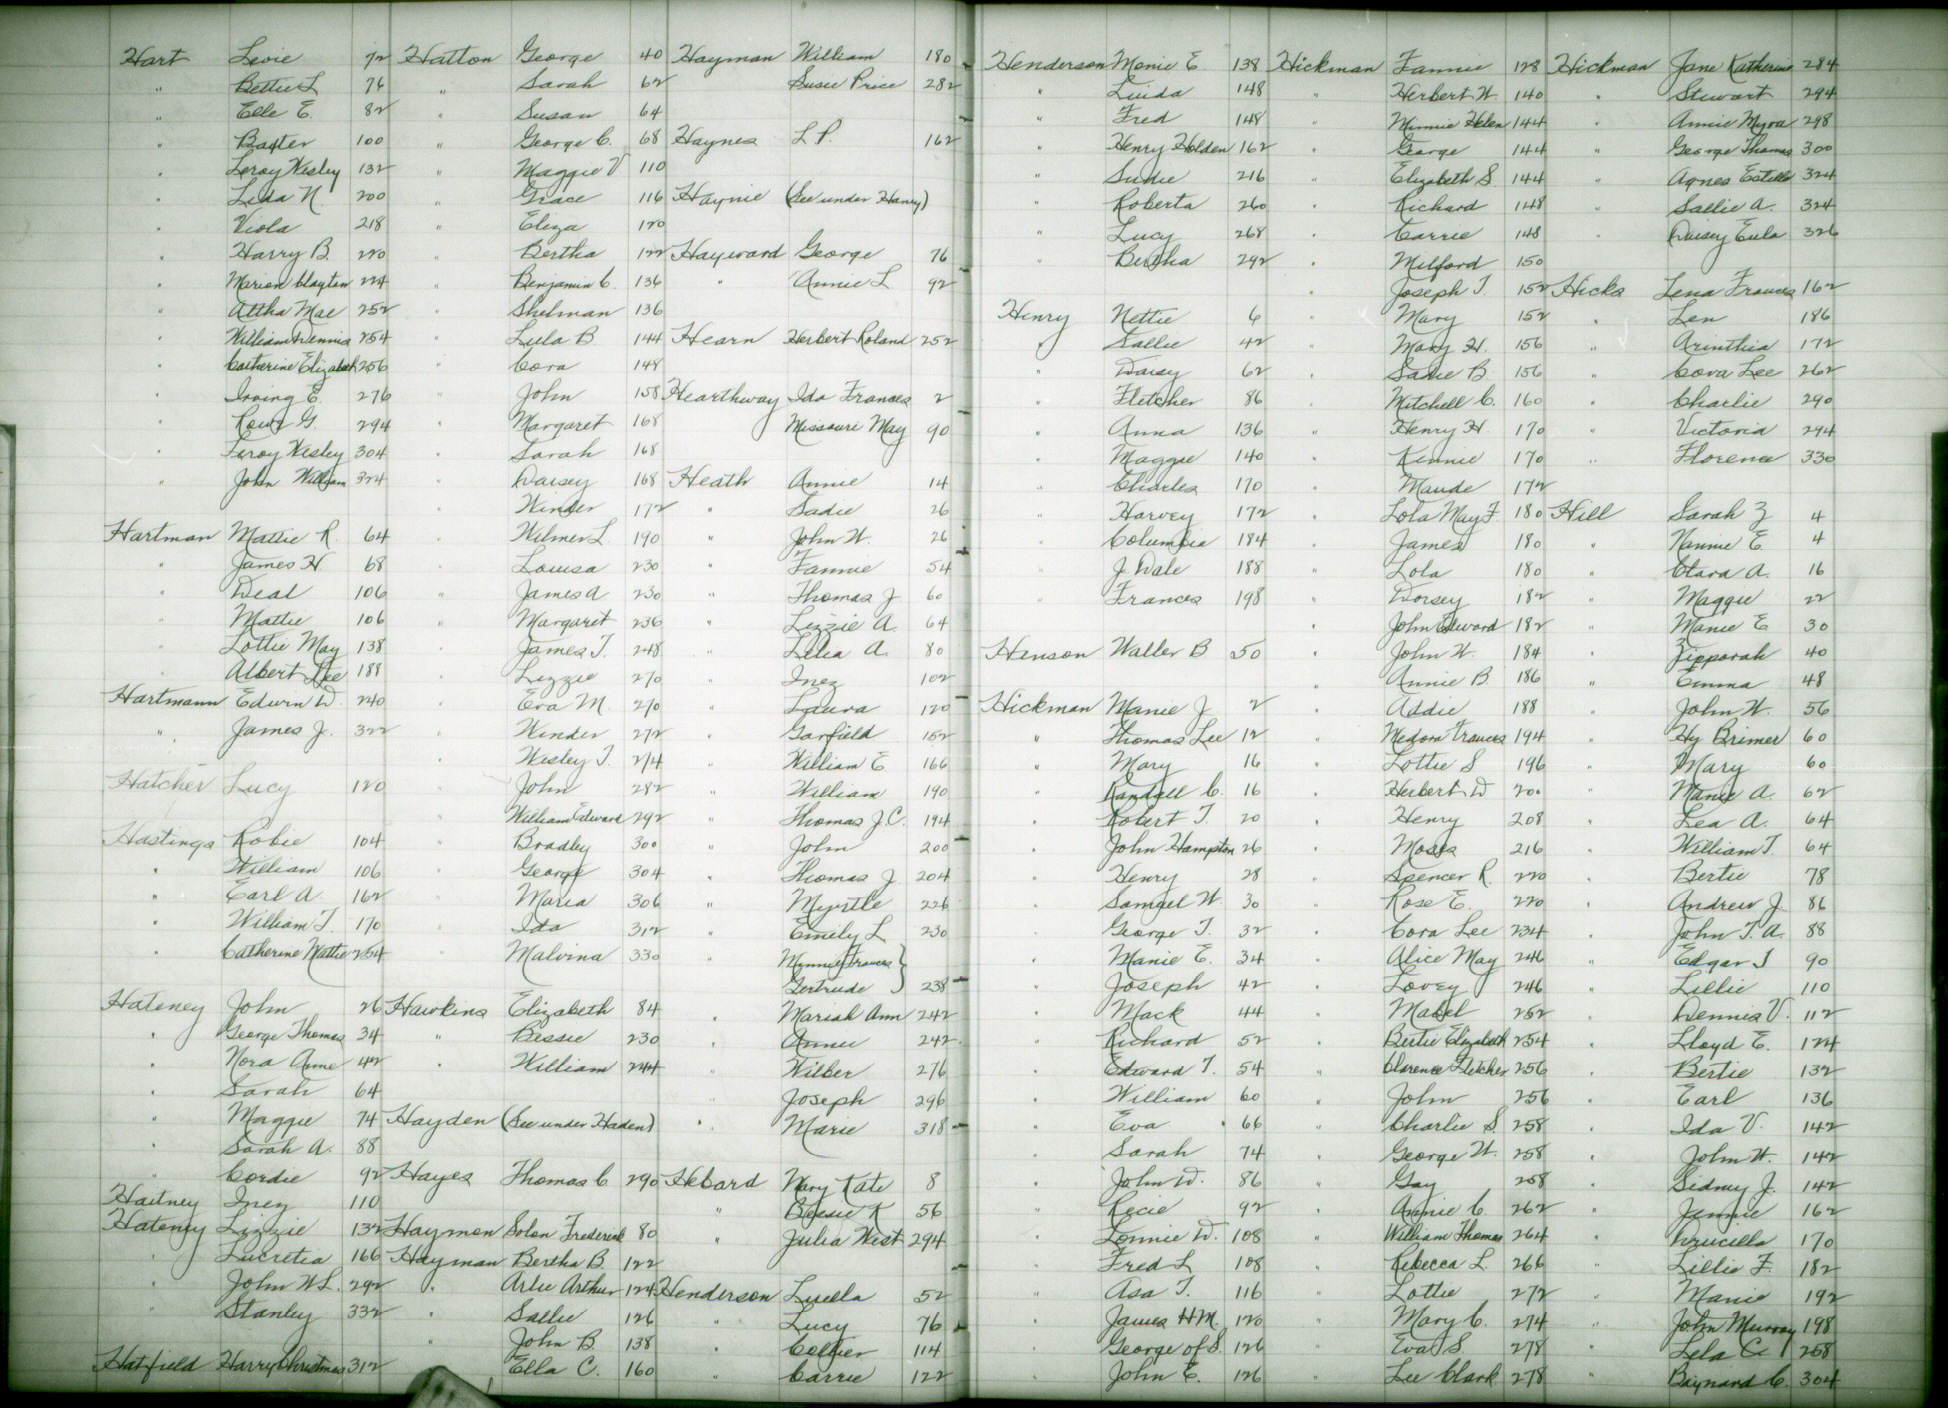 Hart Levie 72
" Bettie L 76
" Elle E. 82
" Baxter 100
" Leroy Wesley 132
" Lida N. 200
" Viola 218
" Harry B. 220
" Marion Clayton 224
" Attha Mae 252
" William Dennis 254
" Catherine Elizabeth 256
" Irving E. 276
" Rowe G. 294
" Leroy Wesley 304
" John William 324
Hartman Mattie R. 64
" James H 68
" Deal 106
" Mattie 106
" Lottie May 138
" Albert Lee 188
Hartmann Edwin D. 240
" James J. 322
Hatcher Lucy 120
Hastings Robie 104
" William 106
" Earl A. 162
" William T. 170
" Catherine Mattie 254
Hateney John 26
" George Thomas 34
" Nora Anne 42
" Sarah 64
" Maggie 74
" Sarah A. 88
" Cordie 92
Haitney Iney 110
Hateney Lizzie 132
" Lucretia 166
" John W L. 292
" Stanley 332
Hatfield Harry Christmas 312
Hatton George 40
" Sarah 62
" Susan 64
" George C. 68
" Maggie V 110
" Grace 116
" Eliza 120
" Bertha 122
" Benjamin C. 136
" Shelman 136
" Lula B 144
" Cora 148
" John 158
" Margaret 168
" Sarah 168
" Daisey 168
" Winder 172
" Wilmer L. 190
" Louisa 230
" James A 230
" Margaret 236
" James T. 248
" Lizzie 270
" Eva M. 270
" Winder 272
" Wesley T. 274
" John 282
" William Edward 292
" Bradley 300
" George 304
" Maria 306
" Ida 312
" Malvina 330
Hawkins Elizabeth 84
" Bessie 230
" William 244
Hayden (See under Haden)
Hayes Thomas C 290
Haymon Solon Frederick 80
Hayman Bertha B 122
" Arlie Arthur 124
" Sallie 126
" John B. 138
" Ella C. 160
Hayman William 180
Susie Price 282
Haynes L P. 162
Haynie (See under Haney)
Hayward George 76
" Annie L 92
Hearn Herbert Roland 252
Hearthway Ida Frances 2
Missouri May 90
Heath Annie 14
" Sadie 26
" John W. 26
" Fannie 54
" Thomas J 60
" Lizzie A. 64
" Lelia A. 80
" Inez 102
" Laura 120
" Garfield 152
" William E 166
" William 190
" Thomas J.C. 194
" John 200
" Thomas J 204
" Myrtle 226
" Emily L 230
" Minnie Frances }
Gertrude } 238
" Mariah Ann 242
" Annie 242
" Wilber 276
" Joseph 296
" Marie 318
Hebard Mary Kate 8
" Bessie K 56
" Julia West 294
Henderson Luella 52
" Lucy 76
" Collier 114
" Carrie 122
Henderson Manie E. 138
" Linda 148
" Fred 148
" Henry Holden 162
" Sudie 216
" Roberta 260
" Lucy 268
" Bertha 292
Henry Nettie 6
" Sallie 42
" Daisy 62
" Fletcher 86
" Anna 136
" Maggie 140
" Charles 170
" Harvey 172
" Columbia 184
" J. Dale 188
" Frances 198
Henson Walter B 50
Hickman Manie J. 2
" Thomas Lee 12
" Mary 16
" Randall C. 16
" Robert T. 20
" John Hampton 26
" Henry 28
" Samuel W. 30
" George T. 32
" Manie E. 34
" Joseph 42
" Mack 44
" Richard 52
" Edward T. 54
" William 60
" Eva 66
" Sarah 74
" John D. 86
" Recie 92
" Lonnie D. 108
" Fred L 108
" Asa T. 116
" James H M. 120
" George of S. 126
" John E. 126
Hickman Fannie 128
" Herbert W. 140
" Minnie Helen 144
" George 144
" Elizabeth S. 144
" Richard 148
" Carrie 148
" Milford 150
" Joseph T. 152
" Mary 152
" Mary H. 156
" Sadie B 156
" Mitchell C. 160
" Henry H. 170
" Kennie 170
" Maude 172
" Lola May F. 180
" James 180
" Lola 180
" Dorsey 182
" John Edward 182
" John W. 184
" Annie B. 186
" Addie 188
" Medora Frances 194
" Lottie S 196
" Herbert D 200
" Henry 208
" Moses 216
" Spencer R. 220
" Rose E. 220
" Cora Lee 234
" Alice May 246
" Lovey 246
" Mabel 252
" Bertie Elizabeth 254
" Clarence Fletcher 256
" John 256
" Charlie S. 258
" George W. 258
" Gay 258
" Annie C. 262
" William Thomas 264
" Rebecca L. 266
" Lottie 272
" Mary C. 274
" Eva S. 278
" Lee Clark 278
Hickman Jane Katherine 284
" Stewart 294
" Annie Myra 298
" George Thomas 300
" Agnes Estelle 324
" Sallie A. 324
" Daisey Eula 326
Hicks Lena Frances 162
" Len 186
" Arinthia 172
" Cora Lee 262
" Charlie 290
" Victoria 294
" Florence 330
Hill Sarah Z 4
" Nannie E. 4
" Clara A. 16
" Maggie 22
" Manie E 30
" Zipporah 40
" Emma 48
" John W. 56
" Hy Brimer 60
" Mary 60
" Manie A. 62
" Lea A. 64
" William T. 64
" Bertie 78
" Andrew J. 86
" John T. A. 88
" Edgar T 90
" Lillie 110
" Dennis V. 112
" Lloyd E. 124
" Bertie 132
" Earl 136
" Ida V. 142
" John H. 142
" Sidney J. 142
" Jennie 162
" Drucilla 170
" Lillie F. 182
" Manie 192
" John Murray 198
" Lela C. 258
" Baynard C. 304